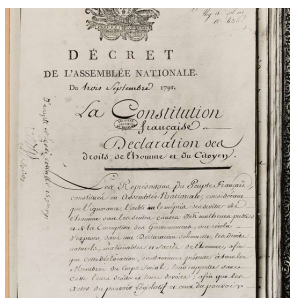 DÉCRET
DE L'ASSEMBLÉE NATIONALE.
Du trois Septembre 1791.
La Constitution
française
Declaration des
droits de l'homme et du Citoyen.
Les Représentans du Peuple Français
constitués en Assemblée Nationale, considérant
que l'ignorance, l'oubli ou le mépris des droits de
l'homme sont les seules causes des malheurs publics
et de la Corruption des Gouvernemens, ont résolu
d'exposer dans une Déclaration solemnelle, les droits
naturels, inaliénables et sacrés de l'homme, afin
que cette Déclaration, constamment présente à tous les
Membres du Corps Social, leur rappelle sans
cesse leurs droits et leurs devoirs; afin que les
actes du pouvoir législatif et ceux du pouvoir